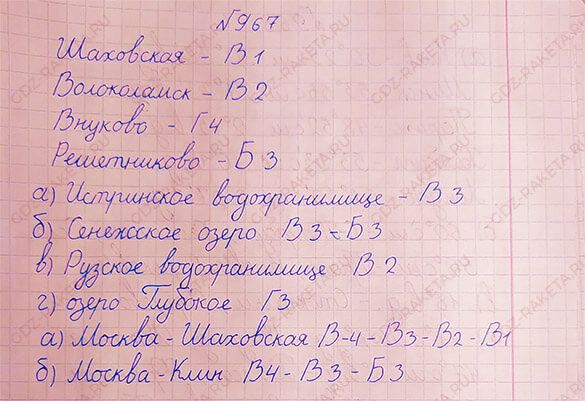 №967
Шаховская - В 1
Волоколамск - В 2
Внуково - Г 4
Решетниково - Б 3
а) Истринское водохранилище - В 3
б) Сенежсское озеро В 3 - Б 3
в) Рузское водохранилище В 2
г) озеро Глубокое Г 3
а) Москва - Шаховская В-4 - В3 - В2 - В1
б) Москва - Клин В4 - В3 - Б3
GDZ-RAKETA.RU